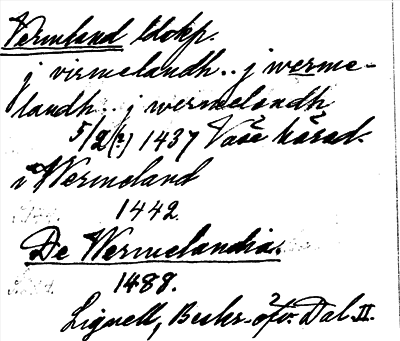 Vermland ldskp.
j virmelandh.. j werme-
landh.. j wermelandh
5/2 (?) 1437 Vase härad
i Wermeland
1442.
De Wermelandia.
1488.
Lignell, Beskr. öfv. Dal. II.